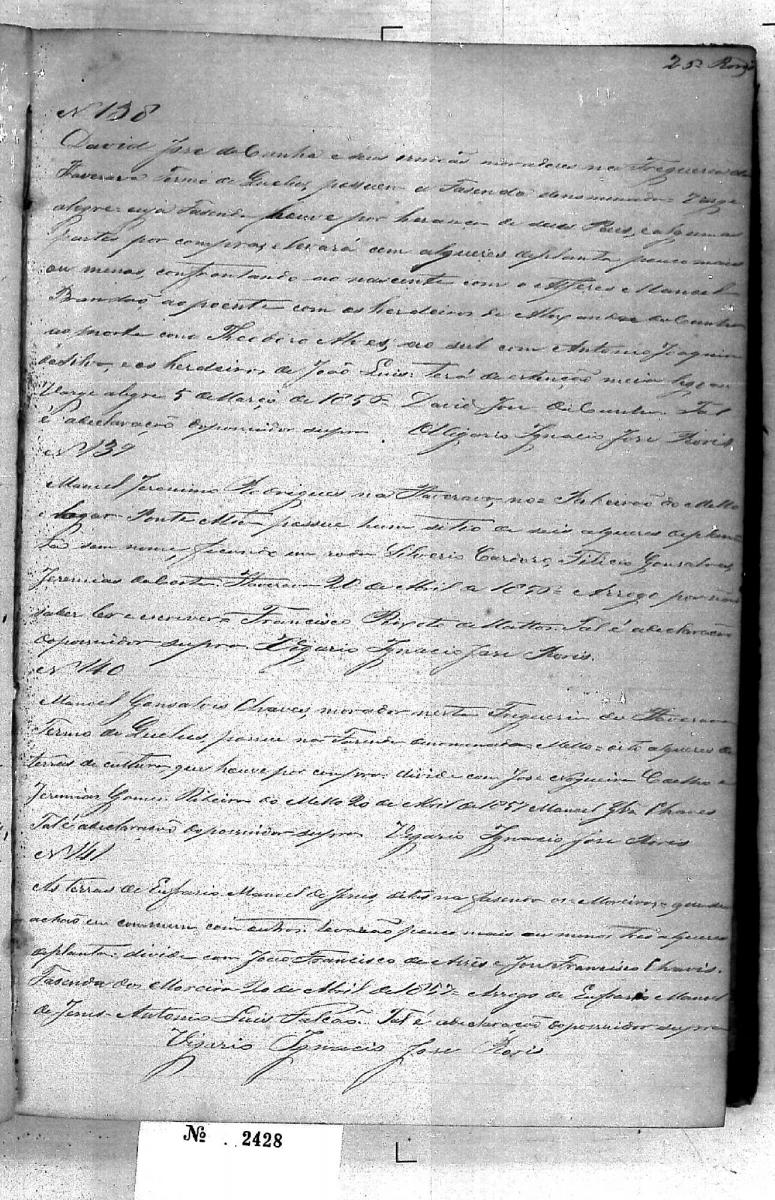 25
N 138
David José da Cunha e seus irmaos moradores na Freguesia de
Itaverava Termo de Queluz, possuem a Fasenda denominada Varge
alegre cuja Fasenda houve por herança de seus Paes, e algumas
partes por compras, e levará cem alqueres de planta pouco mais
ou menos, confrontando ao nascente com o Alferes Manoel
Brandaõ, ao poente com os herdeiros de Alexandre da Cunha
ao norte com Theodoro Alves, ao sul com Antonio Joaquim
da Silva, e os herdeiros de João Luis: terá de extenção meia legoa
Varge alegre 5 de Março de 1856 David José da Cunha. Tal
é a declaração do possuidor supra O Vigario Ignacio José
N 139
Manoel Jeronimo Rodrigues na Itaverava, no Ribeirão do Mello
e lugar Ponte possue hum sitio de seis alqueres de planta
sem nome, ficando em roda Silverio Cardoso, Felicio Gonsalves,
Jeremias da Costa. Itaverava 20 de Abril de 1857 e Arrogo por não
saber ler e escrever Francisco Peixoto de Mattos. Tal é a declaração
do possuidor supra. Vigario Ignacio José
N 140
Manoel Gonsalves Chaves, morador nesta Freguesia de Itaverava
Termo de Queluz, possue na Fasenda denominada Mello oito alqueres de
terras de cultura, que houve por compra: divide com José Nogueira Coelho e
Jeremias Gomes Ribeirão do Mello 20 de Abril de 1857 Manoel Glz Chaves
Tal é a declaração do possuidor supra Vigario Ignacio José
N 141
As terras de Eufrasio Manoel de Jesus, sitas na fasenda os Moreiras, que se
achão em commum com outros: levarão pouco mais ou menos tres alqueres
de planta: divide com João Francisco de Assis e José Francisco Chaves.
Fasenda dos Moreiras 20 de Abril de 1857 Arrogo de Eufrasio Manoel
de Jesus Antonio Luis Falcão. Tal é a declaração do possuidor supra
Vigario Ignacio José
Nº 2428